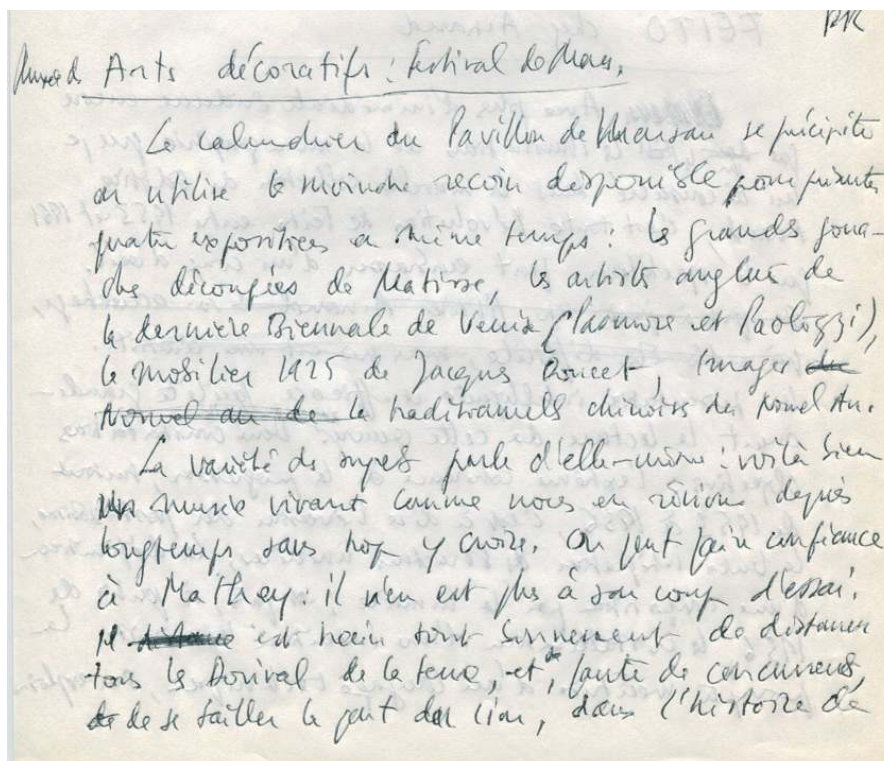 PR
Musée des Arts décoratifs : Festival de Mars.
Le calendrier du Pavillon de Marsan se précipite
on utilise le moindre recoin disponible pour présenter
quatre expositions en même temps : les grandes goua-
ches découpées de Matisse, les artistes anglais de
la dernière Biennale de Venise (Pasmore et Paolozzi),
le mobilier 1925 de Jacques Doucet, Images de
Nouvel an de le traditionnels chinoises du Nouvel An.
La variété des sujets parle d'elle-même : voilà bien
un musée vivant comme nous en rêvions depuis
longtemps sans trop y croire. On peut faire confiance
à Mathey : il n'en est plus à son coup d'essai.
Il est en train tout bonnement de distancer
tous les Dorival de la terre, et, faute de concurrents,
de de se tailler la part du lion, dans l'histoire de